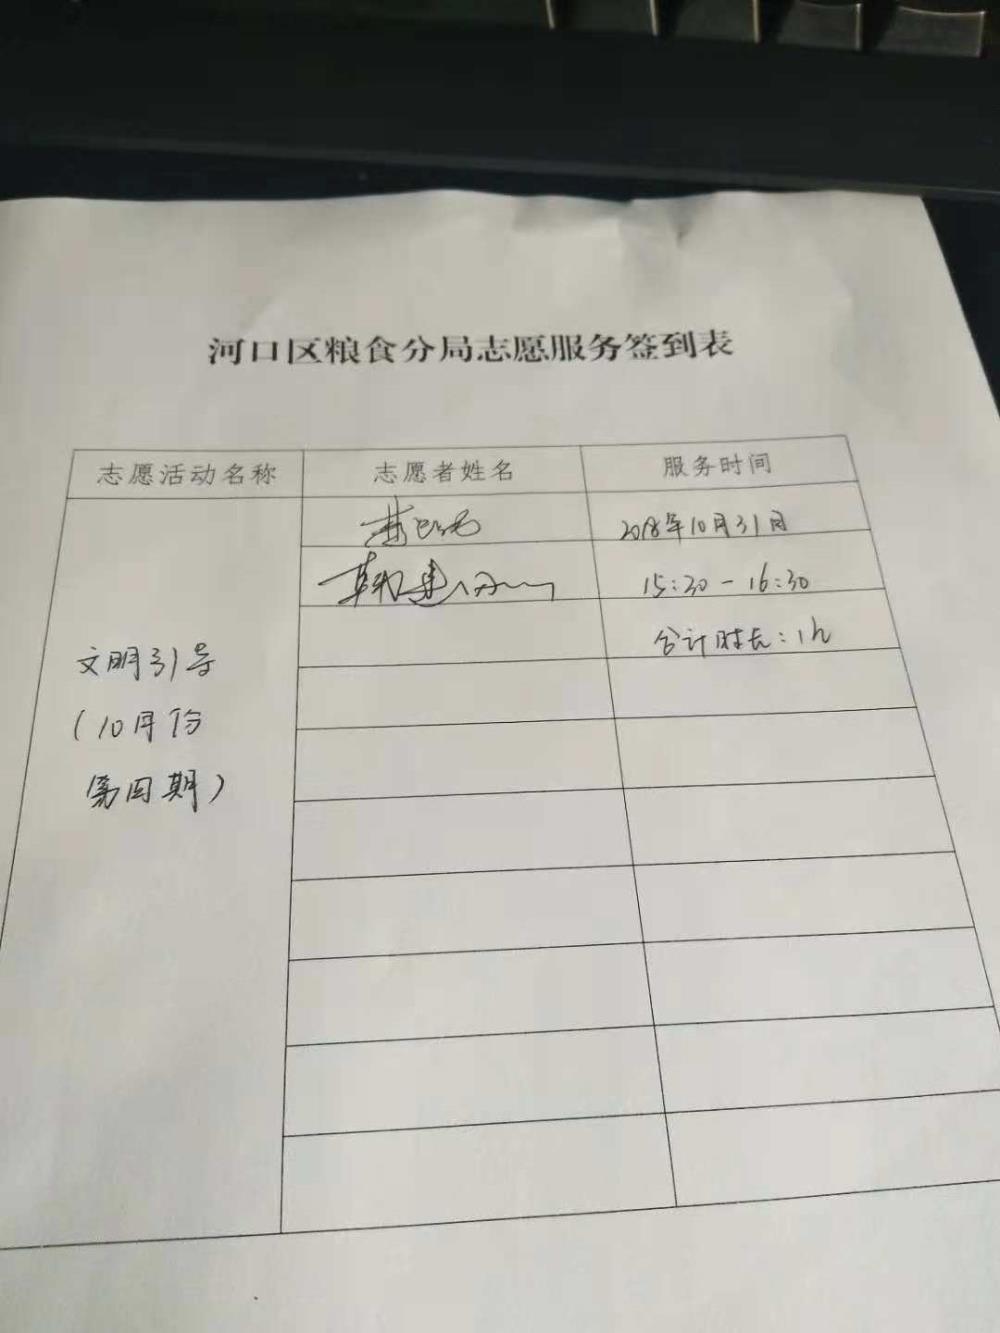 河口区粮食分局志愿服务签到表
志愿活动名称 志愿者姓名 服务时间
2018年10月31日
15:30-16:30
合计时长:1h
文明引导
(10月份
第四期)